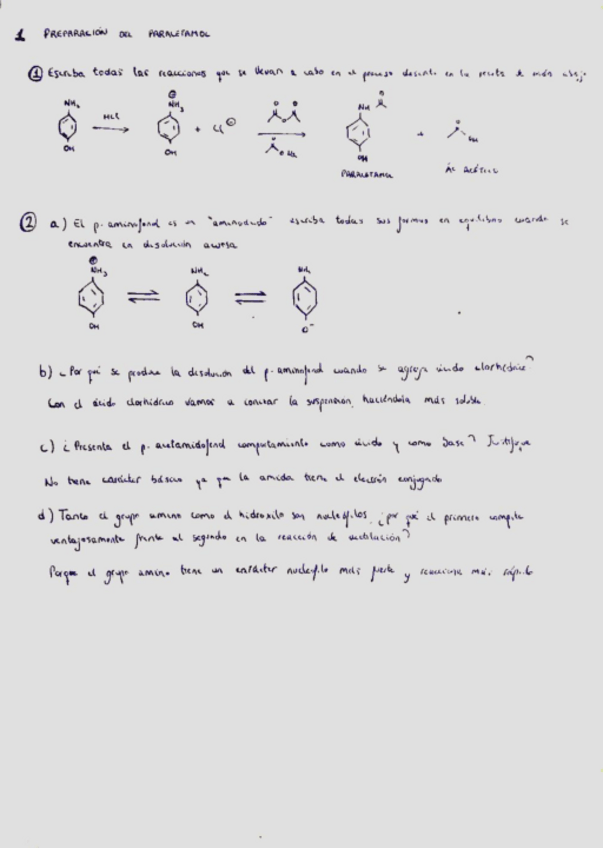 1 PREPARACIÓN DEL PARACETAMOL
① Escriba todas las reacciones que se llevan a cabo en el proceso descrito en la receta de más abajo
NH₂ HCl ⊕ NH₃ + Cl⊖ O O O NH O O
OH OH O OH OH + OH
PARACETAMOL ÁC ACÉTICO
② a) El p-aminofenol es un "aminoácido" escriba todas sus formas en equilibrio cuando se
encuentra en disolución acuosa
⊕ NH₃ NH₂ NH₂
OH OH O⁻
b) ¿Por qué se produce la disolución del p-aminofenol cuando se agrega ácido clorhídrico?
Con el ácido clorhídrico vamos a la suspensión, haciéndola más soluble.
c) ¿Presenta el p-acetamidofenol comportamiento como ácido y como base? Justifique
No tiene carácter básico ya que la amida tiene el electrón conjugado
d) Tanto el grupo amino como el hidroxilo son nucleófilos, ¿por qué el primero compite
ventajosamente frente al segundo en la reacción de acetilación?
Porque el grupo amino tiene un carácter nucleófilo más fuerte y reacciona más rápido